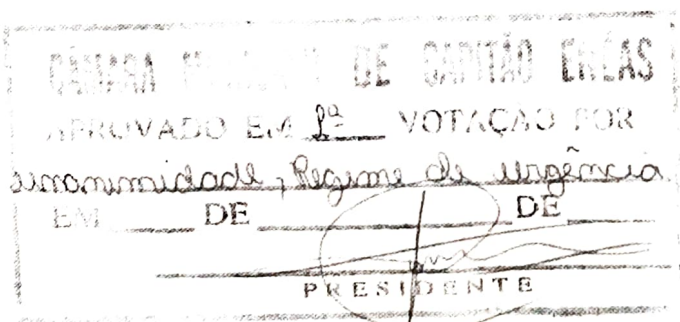 CÂMARA MUNICIPAL DE CAPITÃO ENÉAS
APROVADO EM 1ª VOTAÇÃO POR
unanimidade, Regime de urgência
EM ____ DE ________ DE ____
PRESIDENTE